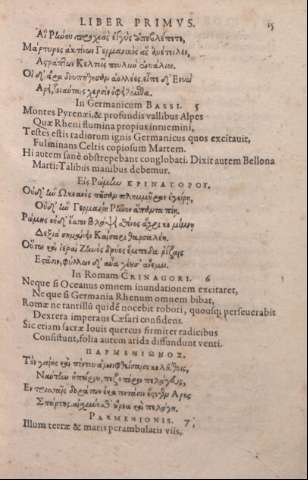 LIBER PRIMVS. 15
Αἳ Ῥώνου προχοὰς ἐγγὺς ἀποβλέπετε,
Μάρτυρες ἀκτίνων Γερμανικὸς ἃς ἀνέτειλεν,
Ἀστράπτων Κελτοῖς πουλὺν ἐνυάλιον.
Οἱ δ᾽ ἄρα δουπήθησαν ἀολλέες, εἶπε δ᾽ Ἐνυὼ
Ἄρεϊ, τοιαύταις χερσὶν ὀφειλόμεθα.
In Germanicum BASSI. 5
Montes Pyrenæi, & profundis vallibus Alpes
Quæ Rheni flumina propius innemini,
Testes estis radiorum ignis Germanicus quos excitauit,
Fulminans Celtis copiosum Martem.
Hi autem sanè obstrepebant conglobati. Dixit autem Bellona
Marti: Talibus manibus debemur.
Εἰς Ῥωμαίων ΚΡΙΝΑΓΟΡΟΥ,
Οὐδ᾽ ἢν Ὠκεανὸς πᾶσαν πλήμμυραν ἐγείρῃ,
Οὐδ᾽ ἢν Γερμανίη Ῥῆνον ἅπαντα πίῃ,
Ῥώμης οὐδ᾽ ὅσσον βλάψει σθένος ἄχρι κε μίμνῃ
Δεξιὰ σημαίνειν Καίσαρι θαρσαλέη.
Οὕτω καὶ ἱεραὶ Ζηνὸς δρύες ἔμπεδα ῥίζαις
Ἑστᾶσιν, φύλλων δ᾽ αὖα χέουσ᾽ ἄνεμοι.
In Romam CRINAGORI. 6
Neque si Oceanus omnem inundationem excitaret,
Neque si Germania Rhenum omnem bibat,
Romæ ne tantillũ quidẽ nocebit roboti, quousq; perseuerabit
Dextera imperans Cæsari confidens.
Sic etiam sacræ Iouis quercus firmiter radicibus
Consistunt, folia autem arida diffundunt venti.
ΠΑΡΜΕΝΙΩΝΟΣ,
Τὸν γαίης καὶ πόντου ἀμειφθείσαισι κελεύθοις,
Ναύτην ἠπείρου, πεζοπόρον πελάγους,
Ἐν τρισσαῖς δοράτων ἑκατοντάσιν ἔσχεν Ἄρης
Σπάρτης, αἰσχύνεσθ᾽ οὔρεα καὶ πελάγη.
PARMENIONIS. 7
Illum terræ & maris perambulatis viis,